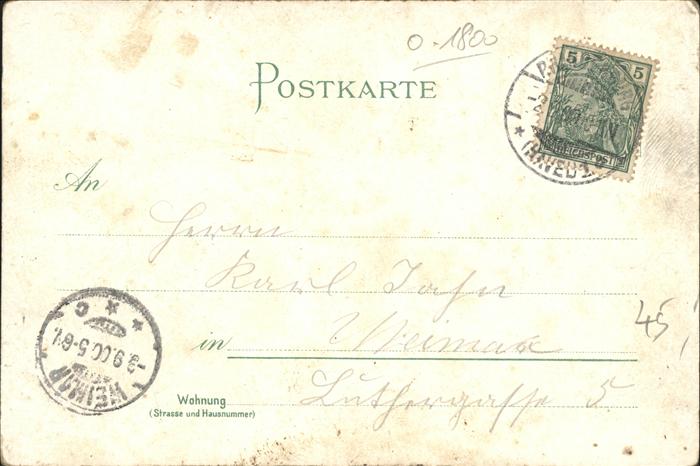 0-1800
POSTKARTE
5 5
REICHSPOST
(HAVEL)
An
Herrn
Karl Jahn
in Weimar
45
Wohnung
(Strasse und Hausnummer)
Luthergasse 5
WEIMAR
-3.9.00.5-6N.